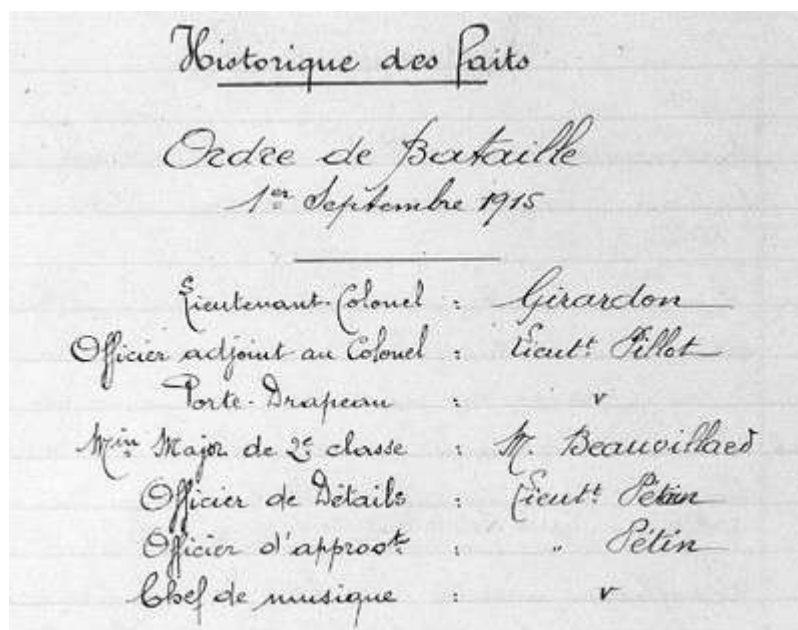 Historique des faits
Ordre de Bataille
1er Septembre 1915
Lieutenant-Colonel : Girardon
Officier adjoint au Colonel : Lieutt Pillot
Porte-Drapeau : v
Min Major de 2e classe : M. Beauvillard
Officier de Détails : Lieutt
Officier d'approvt : " Pétin
Chef de musique : v